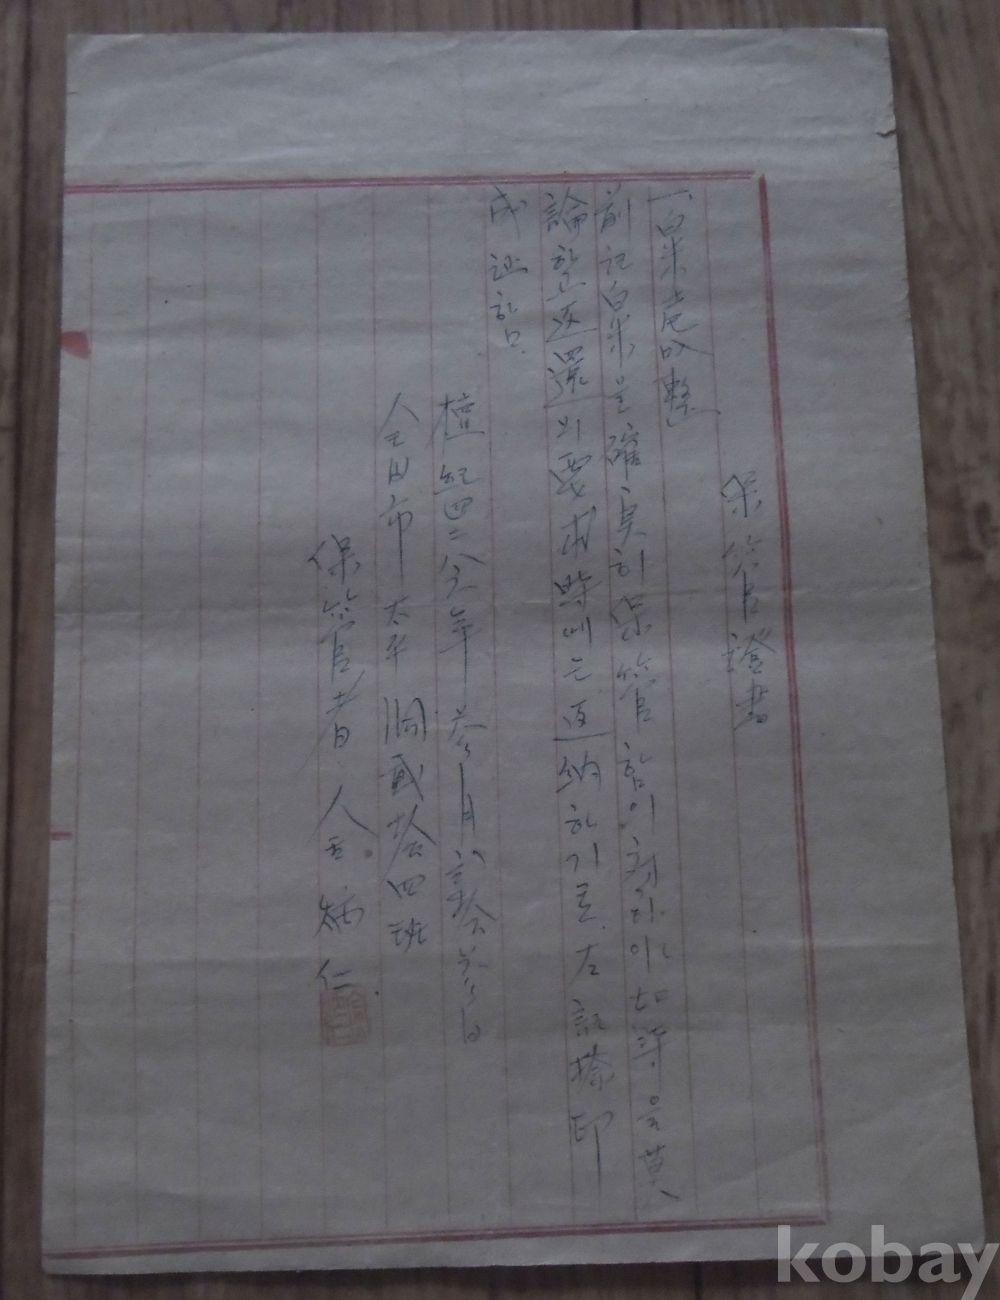 保管證書
一、白米壱叺整
前記白米을確實히保管함이 如何을莫
論하고返還의要求時에는返納하기로左記捺印
成證함.
檀紀四二八 年參月貳拾參日
全州市 太平洞貳拾四班
保管者 全炳仁
kobay